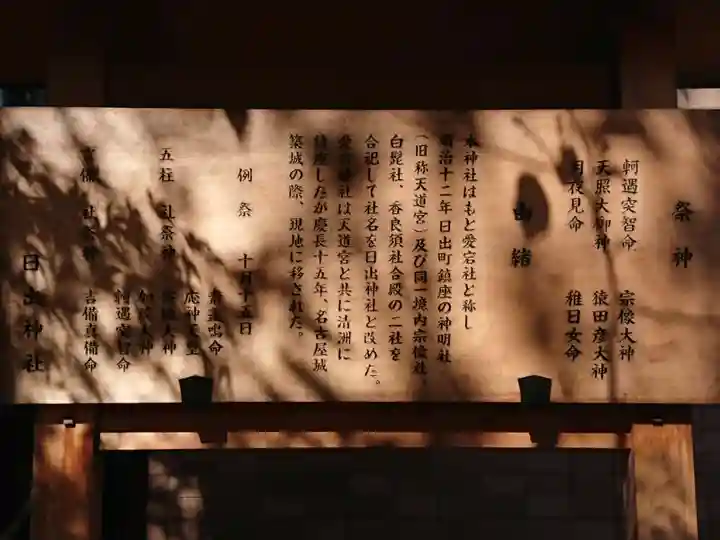 祭神
軻遇突智命 宗像大神
天照大御神 猿田彦大神
月夜見命 稚日女命
由緒
本神社はもと愛宕社と称し
明治十二年日出町鎮座の神明社
(旧称天道宮)及び同一境内宗像社、
白髭社、香良須社合殿の二社を
合祀して社名を日出神社と改めた。
愛宕神社は天道宮と共に清洲に
鎮座したが慶長十五年、名古屋城
築城の際、現地に移された。
例祭 十月十五日
素盞嗚命
応神天皇
五柱 社祭神 宗像大神
加具大神
軻遇突智命
吉備真備命
日出神社